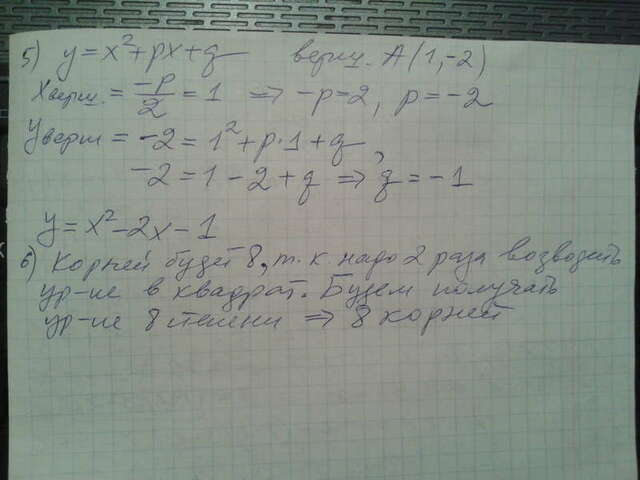 5) y=x²+px+q верш. A(1,-2)
Xверш. = -p/2 = 1 => -p=2, p=-2
Yверш = -2 = 1²+p·1+q,
-2=1-2+q => q=-1
y=x²-2x-1
6) Корней будет 8, т.к. надо 2 раза возводить
ур-ие в квадрат. Будем получать
ур-ие 8 степени => 8 корней